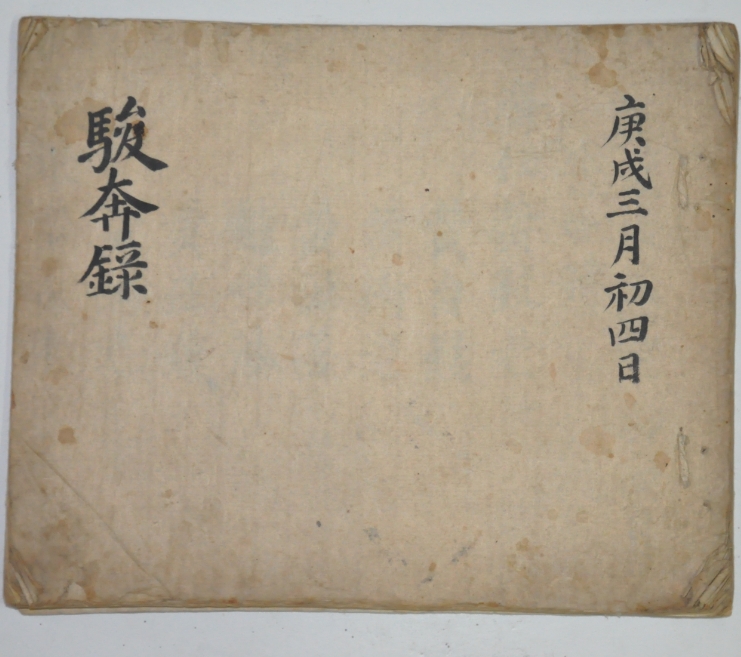 庚戌三月初四日
駿奔錄